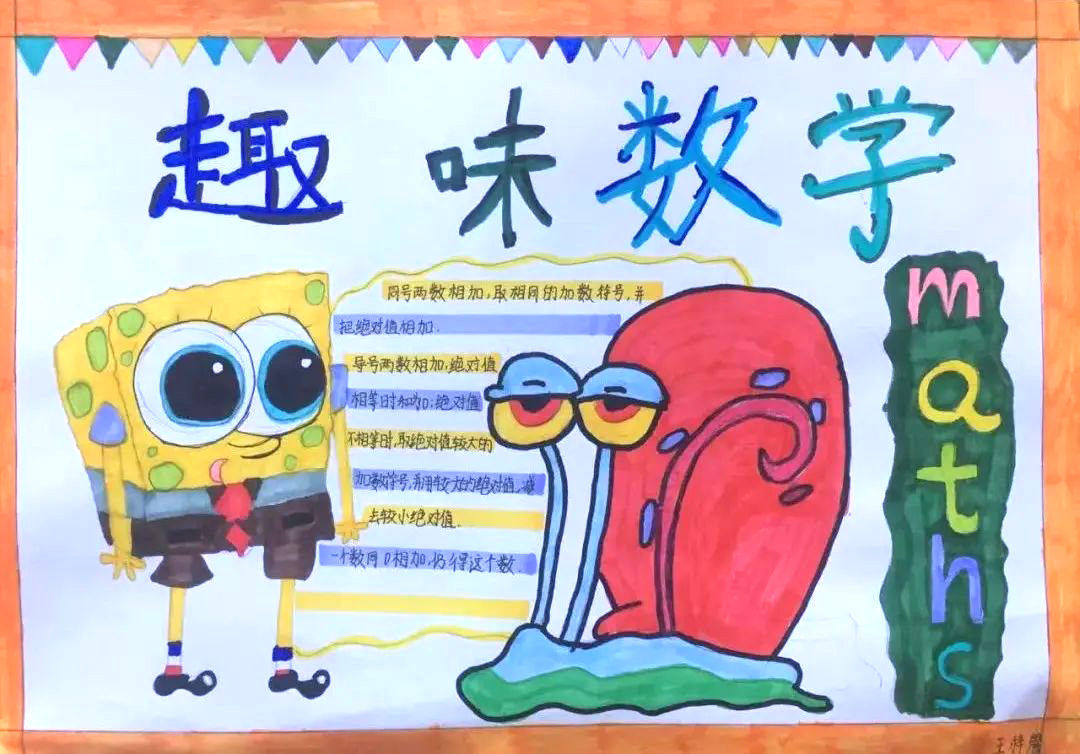 趣味数学
同号两数相加,取相同的加数符号,并
把绝对值相加.
异号两数相加,绝对值
相等时和为0;绝对值
不相等时,取绝对值较大的
加数符号,并用较大的绝对值减
去较小绝对值.
一个数同0相加,仍得这个数.
maths